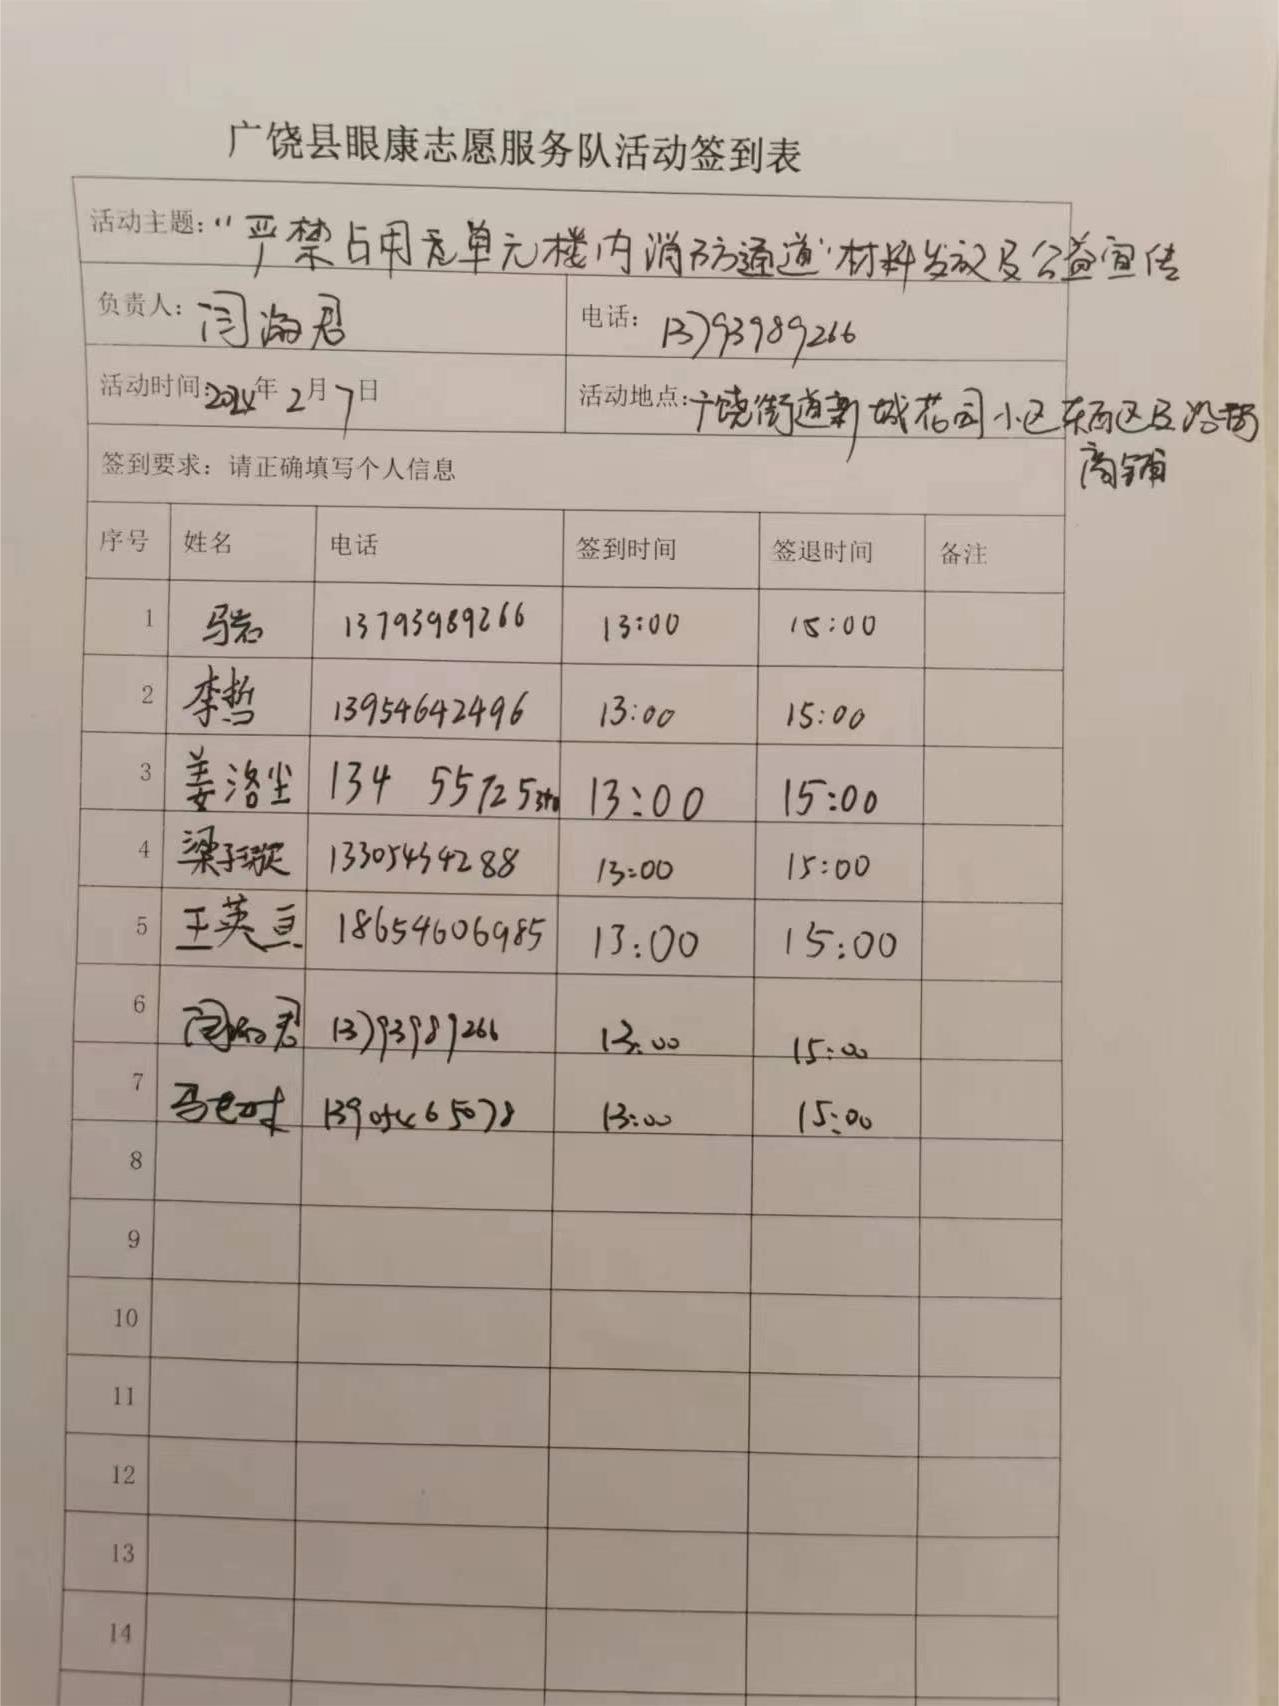 广饶县眼康志愿服务队活动签到表
活动主题：“严禁占用 单元楼内消防通道”材料发放及公益宣传
负责人：闫海君 电话：13793989266
活动时间：2024年2月7日 活动地点：广饶街道新城花园小区东西区及沿街
商铺
签到要求：请正确填写个人信息
序号 姓名 电话 签到时间 签退时间 备注
1 马岩 13793989266 13:00 15:00
2 李哲 13954642496 13:00 15:00
3 姜洺尘 134 55725 13:00 15:00
4 梁子璇 13305454288 13:00 15:00
5 王英亘 18654606985 13:00 15:00
6 闫海君 13793989266 13:00 15:00
7 13905465078 13:00 15:00
8
9
10
11
12
13
14